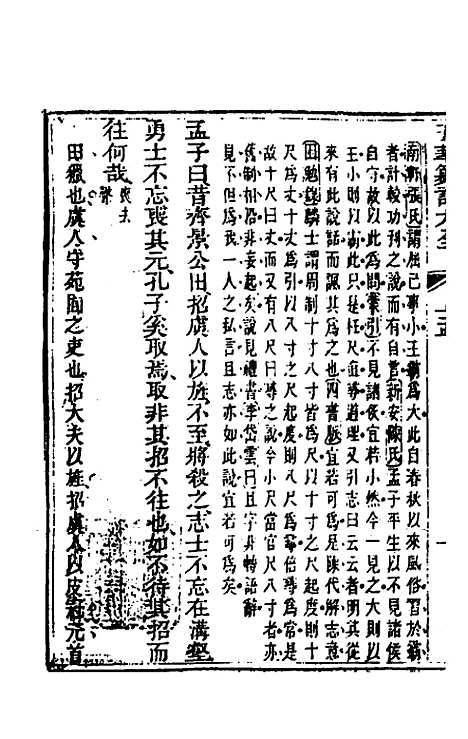 南軒張氏謂屈己事小王霸爲大此自春秋以來風俗習於霸
者計較功利之說而有自言新安陳氏孟子平生以不見諸侯
自守故以此爲問蒙引不見諸侯宜若小然今一見之大則以
王小則以霸此只是枉尺直尋道理又引志曰云云者明其從
來有此說話而諷其爲之也四書宜若可爲是陳代解志意
田勉錢騎士謂周制十寸八寸皆爲尺以十寸之尺起度則十
尺爲丈十丈爲引以八寸之尺起度則八尺爲尋倍尋爲常是
故十尺曰丈而又有八尺曰尋之說今小尺當官尺八寸者亦
舊制相沿非妄起矣說見禮書李岱雲曰且字非轉語辭
見不但爲我一人之私言且志亦如此說宜若可爲矣
孟子曰昔齊景公田招虞人以旌不至將殺之志士不忘在溝壑
勇士不忘喪其元孔子奚取焉取非其招不往也如不待其招而
往何哉喪去聲
田獵也虞人守苑囿之吏也招大夫以旌招虞人以皮冠元首